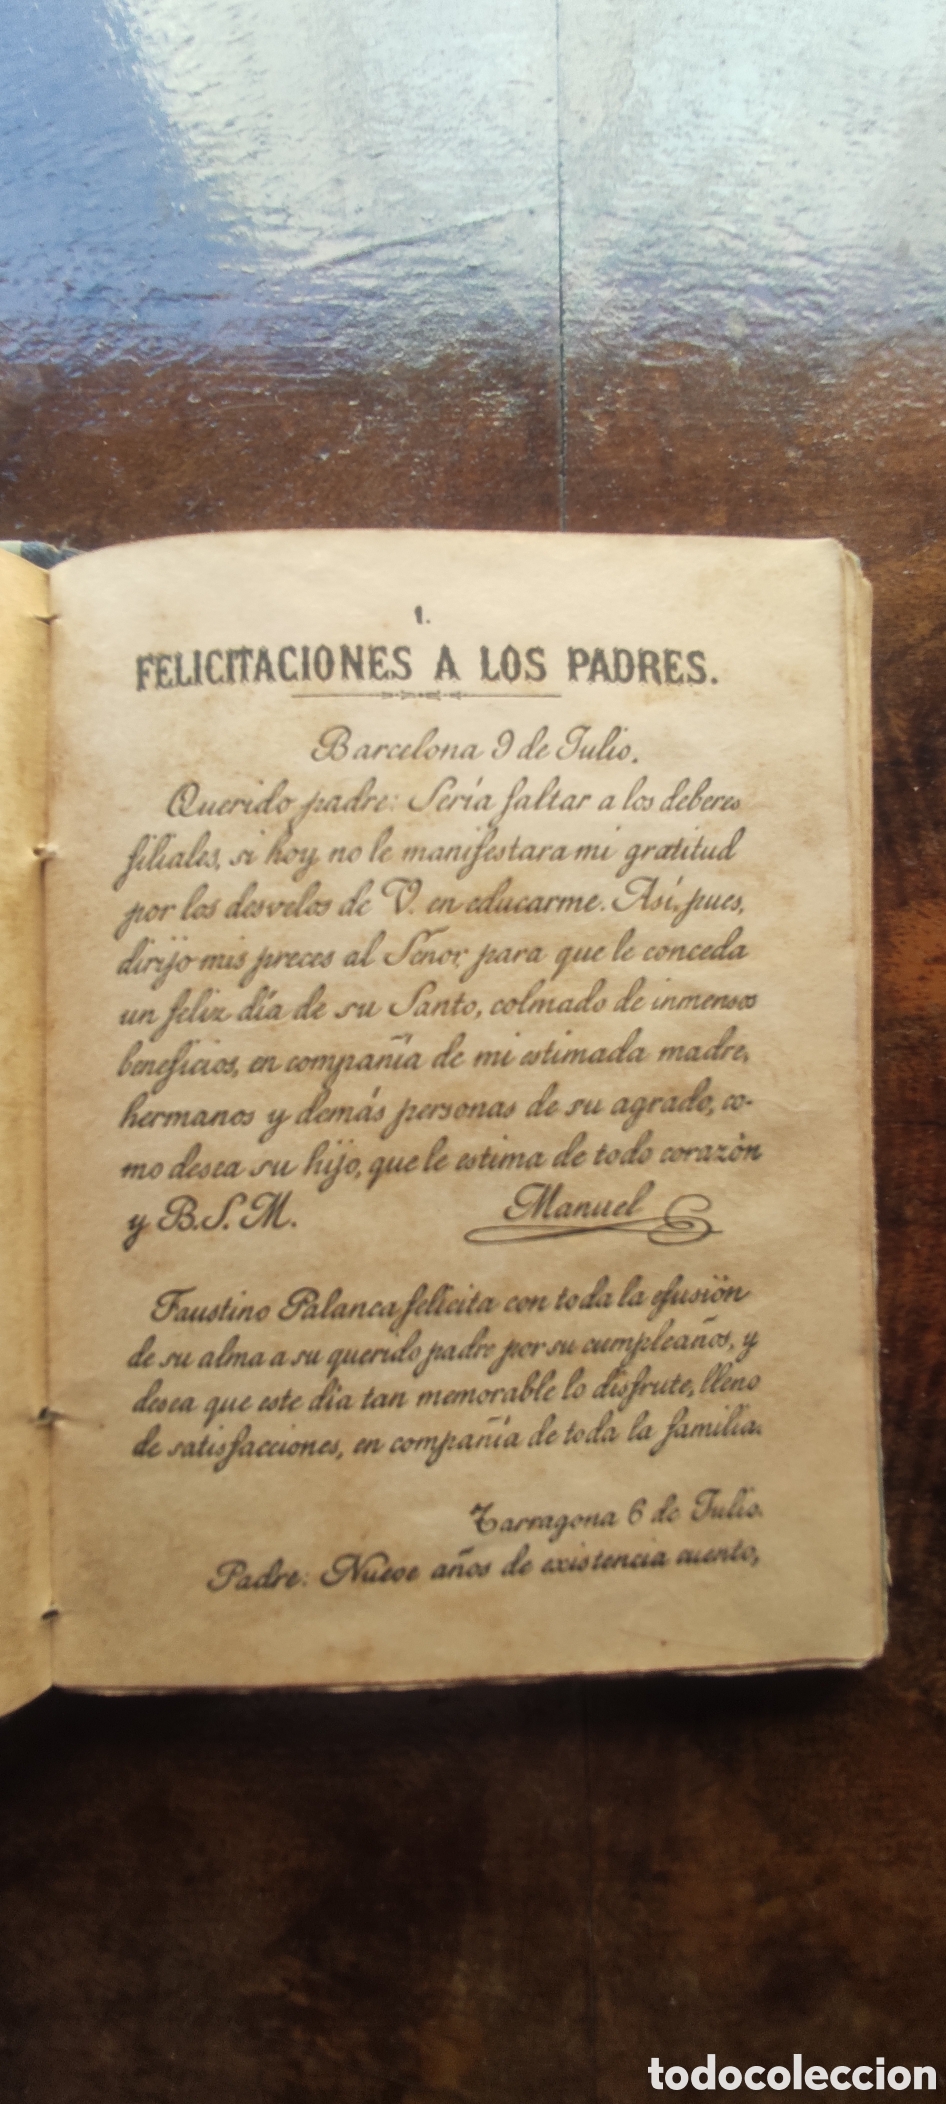 1.
FELICITACIONES A LOS PADRES.
Barcelona 9 de Julio.
Querido padre: Sería faltar a los deberes
filiales, si hoy no le manifestara mi gratitud
por los desvelos de V. en educarme. Así, pues,
dirijo mis preces al Señor, para que le conceda
un feliz día de su Santo, colmado de inmensos
beneficios, en compañía de mi estimada madre,
hermanos y demás personas de su agrado, co-
mo desea su hijo, que le estima de todo corazón
y B. S. M. Manuel
Faustino Palanca felicita con toda la efusión
de su alma a su querido padre por su cumpleaños, y
desea que este día tan memorable lo disfrute, lleno
de satisfacciones, en compañía de toda la familia.
Tarragona 6 de Julio.
Padre: Nueve años de existencia cuento,
todocoleccion